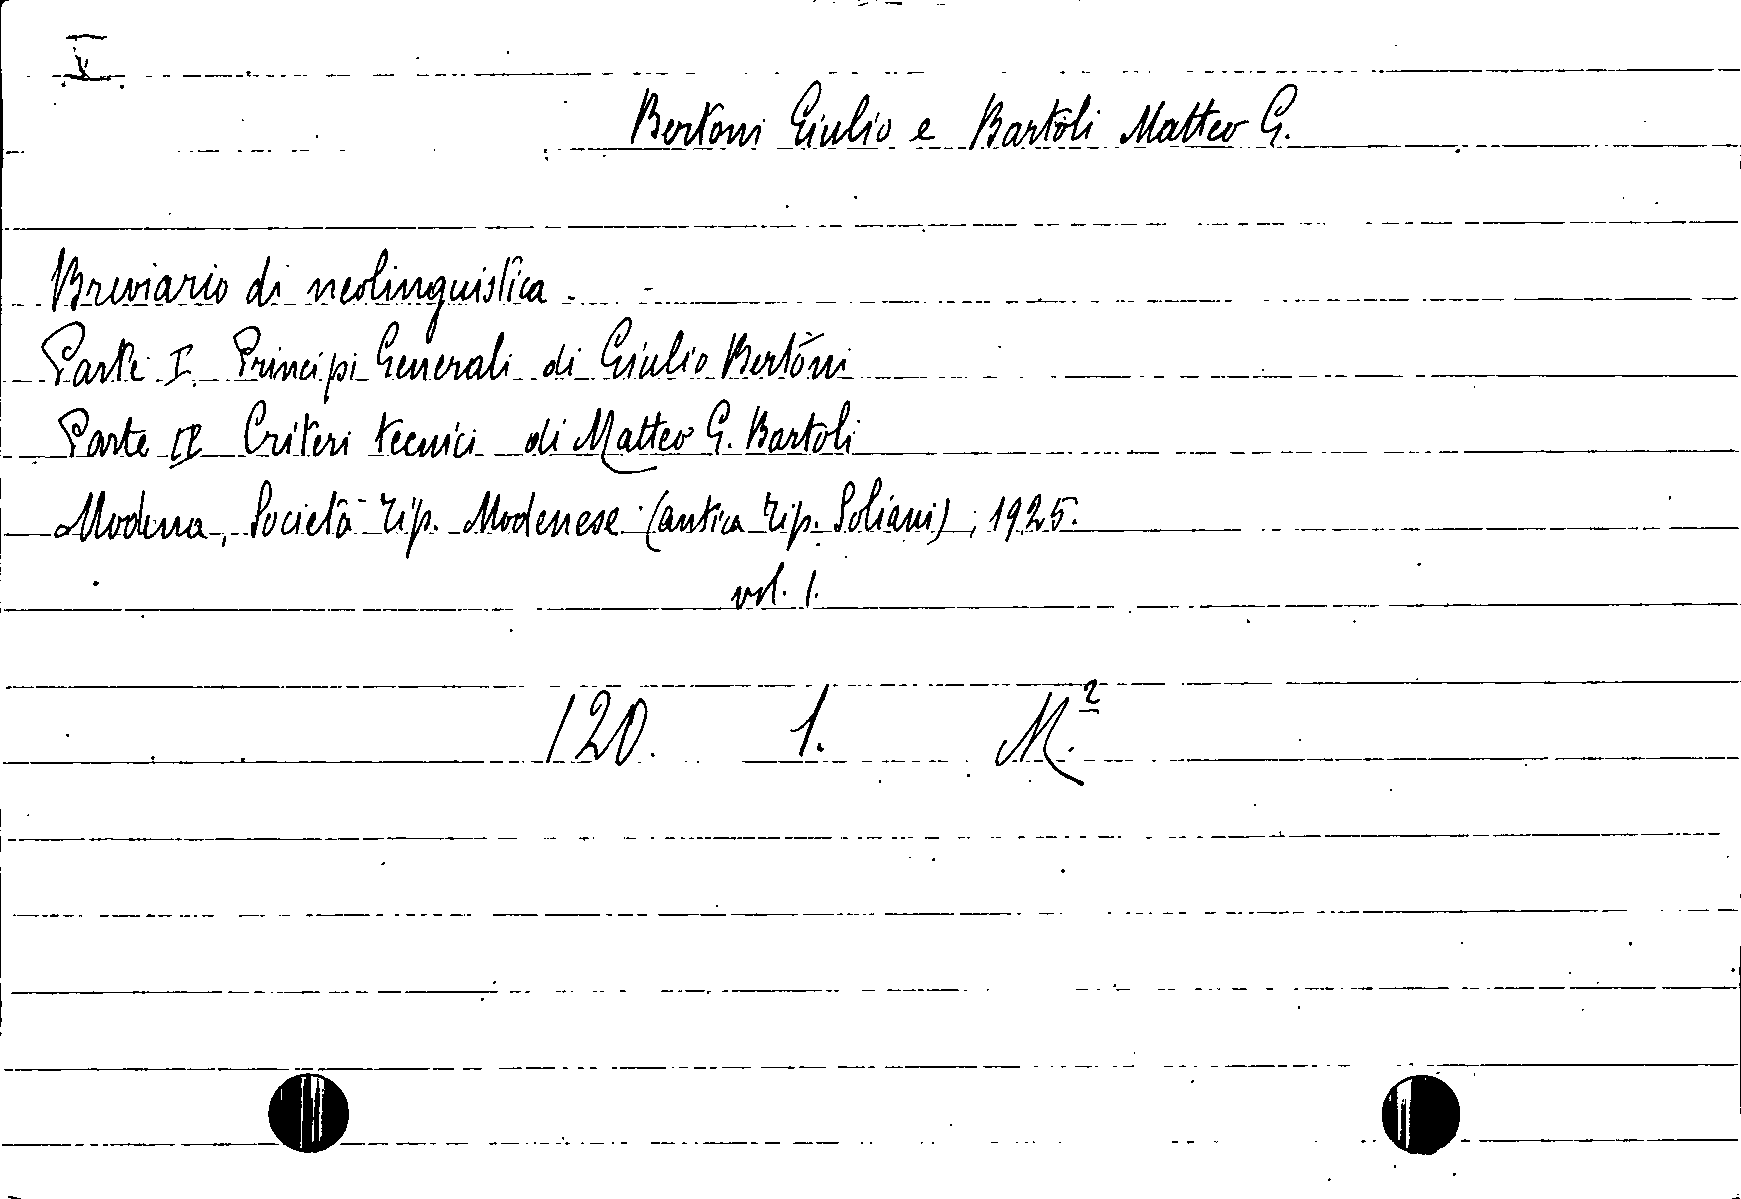 V
Bertoni Giulio e Bartoli Matteo G.
Breviario di neolinguistica.
Parte I. Principi Generali di Giulio Bertoni
Parte II Criteri tecnici di Matteo G. Bartoli
Modena, Società Tip. Modenese (antica Tip. Soliani), 1925.
vol. 1.
120. 1. M.²